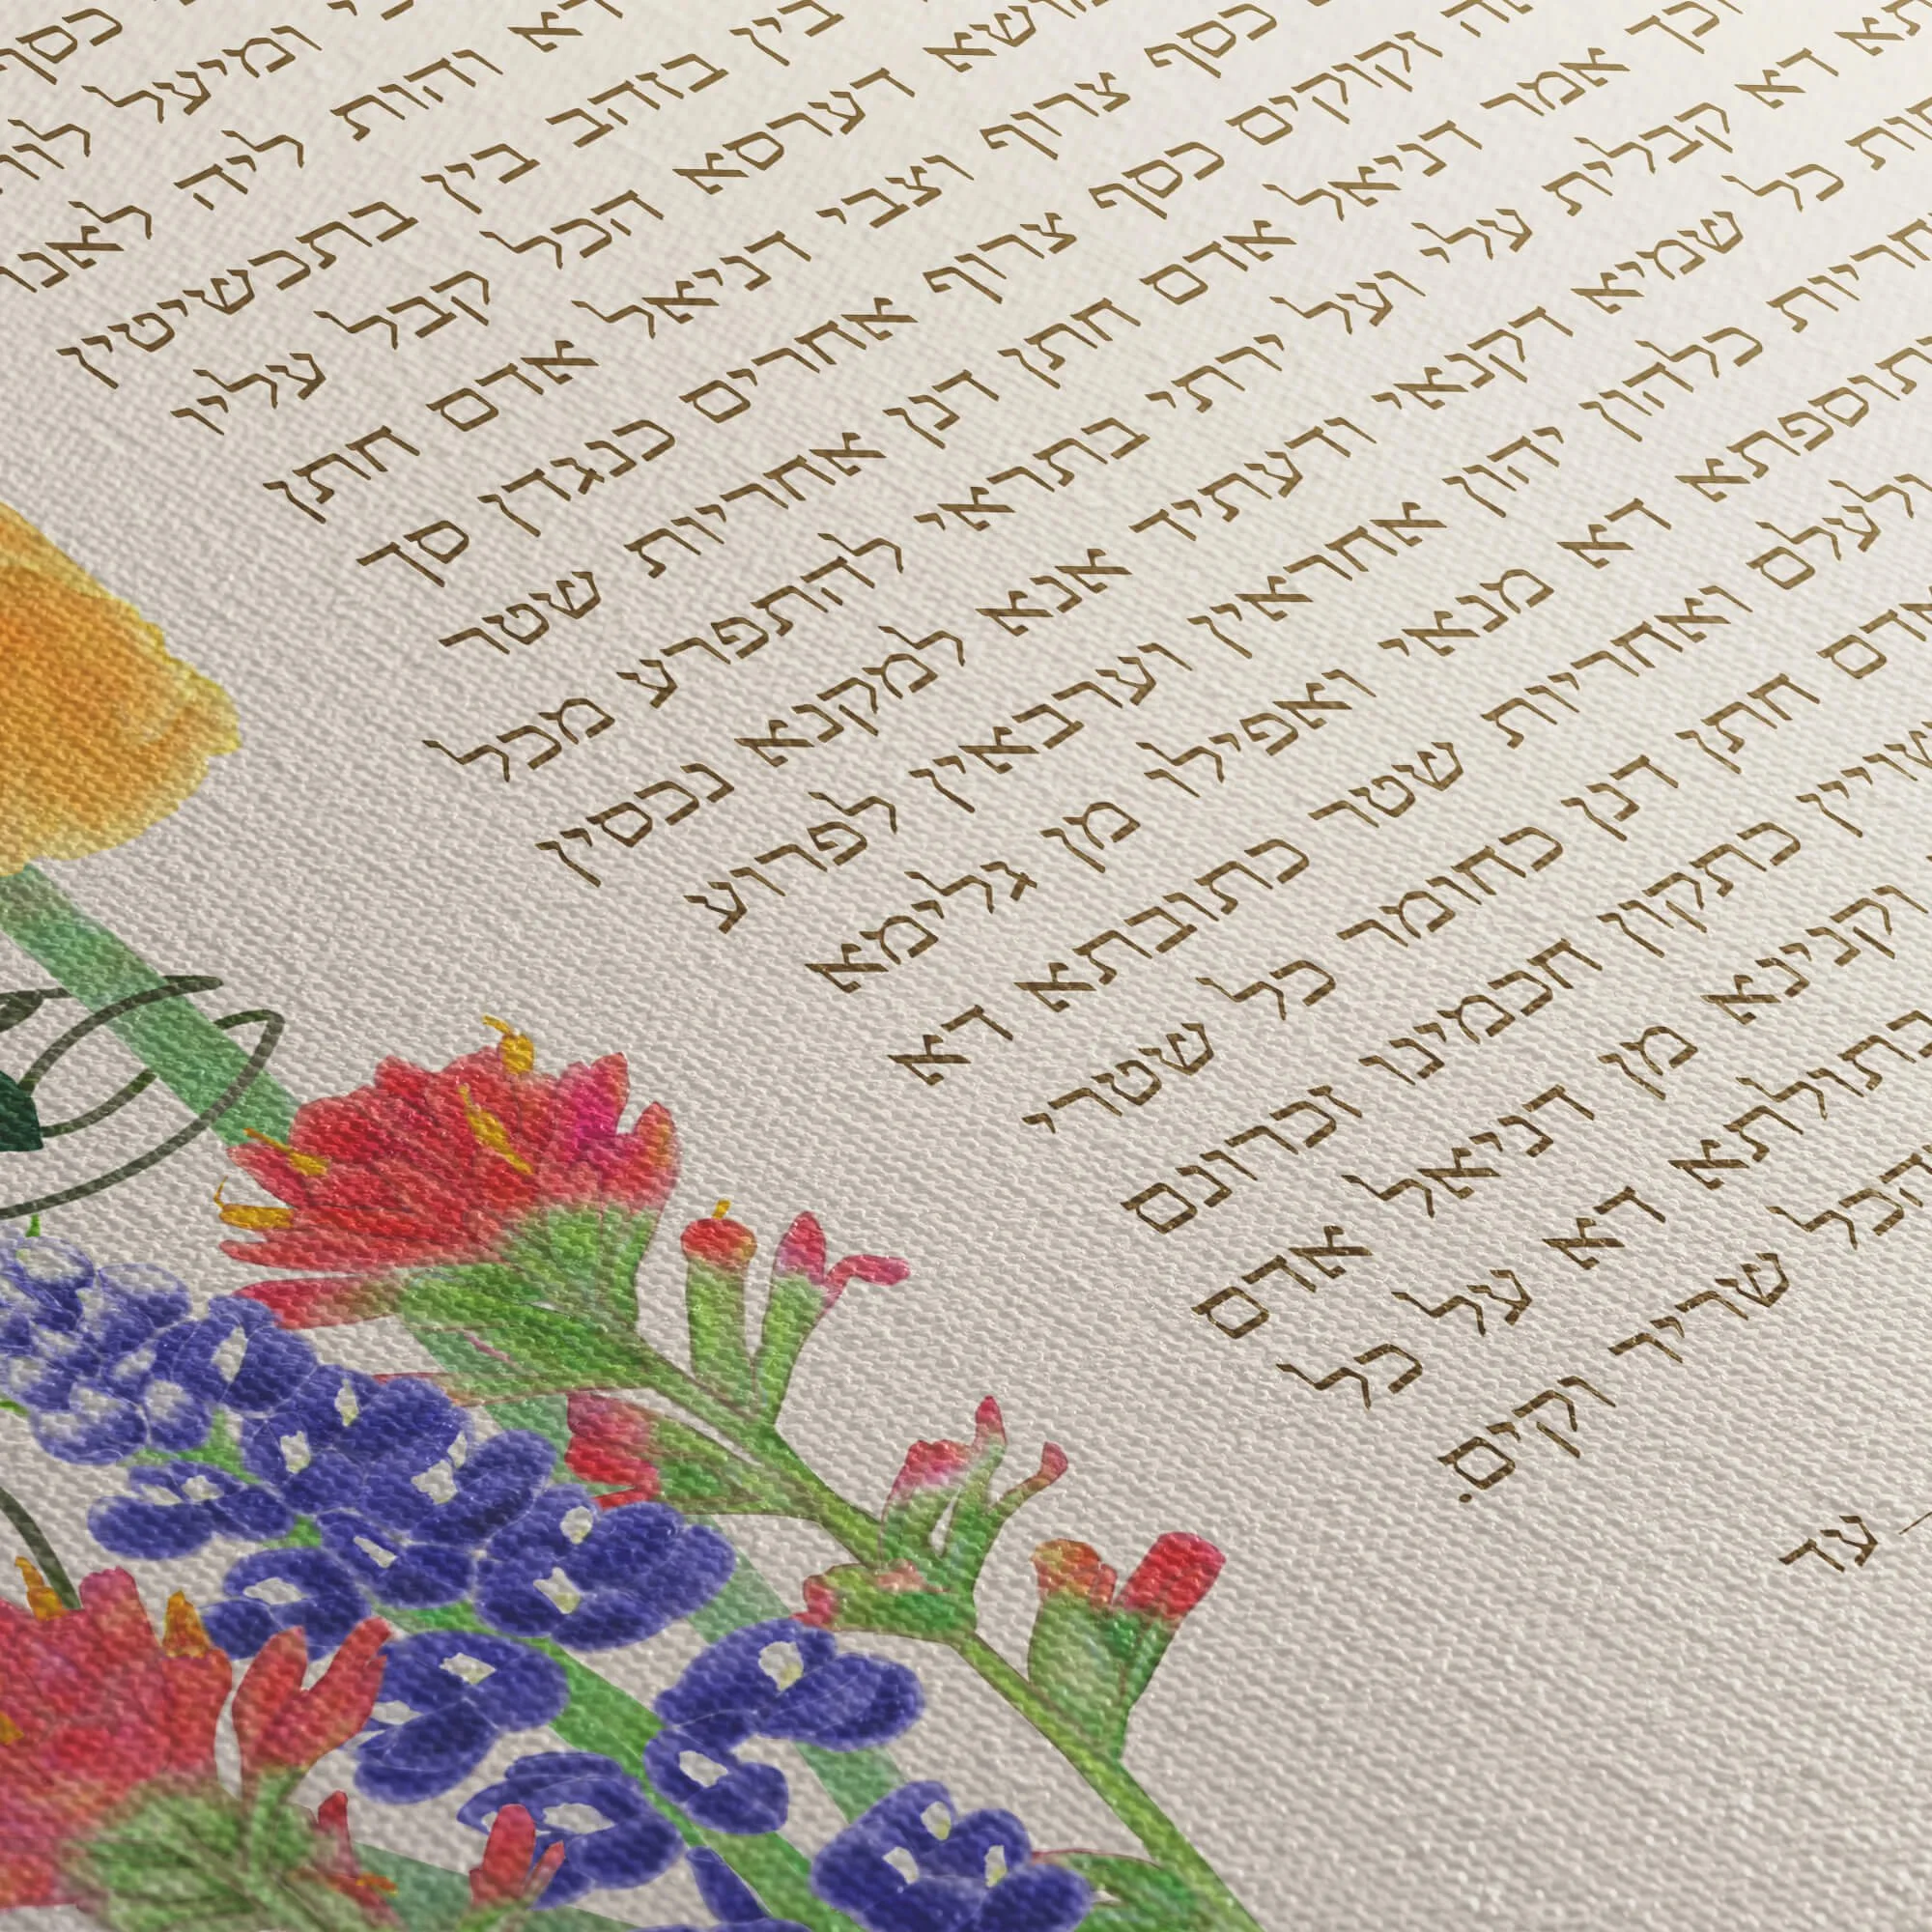 כסף
ומיעל
והות ליה
בין בזהב בין בתכשיטין
דערסא הכל קבל עליו
כסף צרוף וצבי דניאל אדם חתן
זקוקים כסף צרוף אחרים כנגדן סך
אמר דניאל אדם חתן דנן אחריות שטר
דא קבלית עלי ועל ירתי בתראי להתפרע מכל
כל שמיא דקנאי ודעתיד אנא למקנא נכסין
כלהון יהון אחראין וערבאין לפרוע
דא מנאי ואפילו מן גלימא
ולעלם ואחריות שטר כתובתא דא
חתן דנן כחומר כל שטרי
כתקון חכמינו זכרונם
וקנינא מן דניאל אדם
בתולתא דא על כל
הכל שריר וקים.
עד